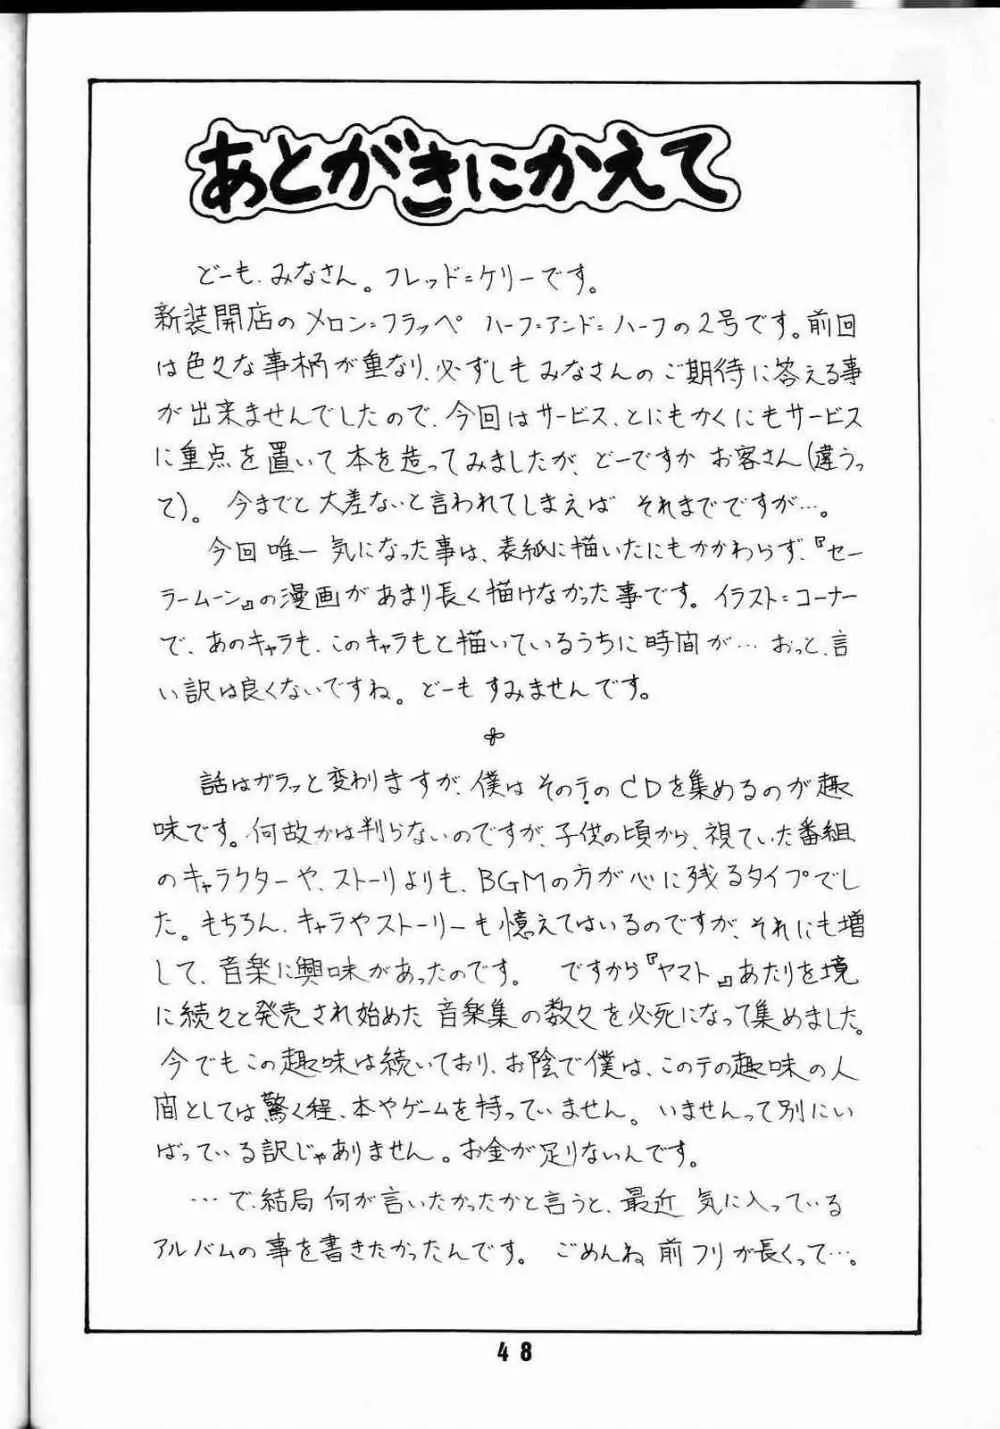 あとがきにかえて
どーも、みなさん。フレッド=ケリーです。
新装開店のメロン=フラッペ ハーフ=アンド=ハーフの2号です。前回
は色々な事柄が重なり、必ずしもみなさんのご期待に答える事
が出来ませんでしたので、今回はサービス、とにもかくにもサービス
に重点を置いて本を造ってみましたが、どーですか お客さん(違うっ
て)。 今までと大差ないと言われてしまえば それまでですが…。
今回唯一気になった事は、表紙に描いたにもかかわらず、『セー
ラームーン』の漫画があまり長く描けなかった事です。イラスト=コーナー
で、あのキャラも、このキャラもと描いているうちに時間が… おっと、言
い訳は良くないですね。どーもすみませんです。
話はガラッと変わりますが、僕はそのテのCDを集めるのが趣
味です。何故かは判らないのですが、子供の頃から、視ていた番組
のキャラクターや、ストーリよりも、BGMの方が心に残るタイプでし
た。もちろん、キャラやストーリーも憶えてはいるのですが、それにも増
して、音楽に興味があったのです。 ですから『ヤマト』あたりを境
に続々と発売され始めた音楽集の数々を必死になって集めました。
今でもこの趣味は続いており、お陰で僕は、このテの趣味の人
間としては驚く程、本やゲームを持っていません。いませんって別にい
ばっている訳じゃありません。お金が足りないんです。
…で、結局何が言いたかったかと言うと、最近 気に入っている
アルバムの事を書きたかったんです。 ごめんね 前フリが長くって…。
48